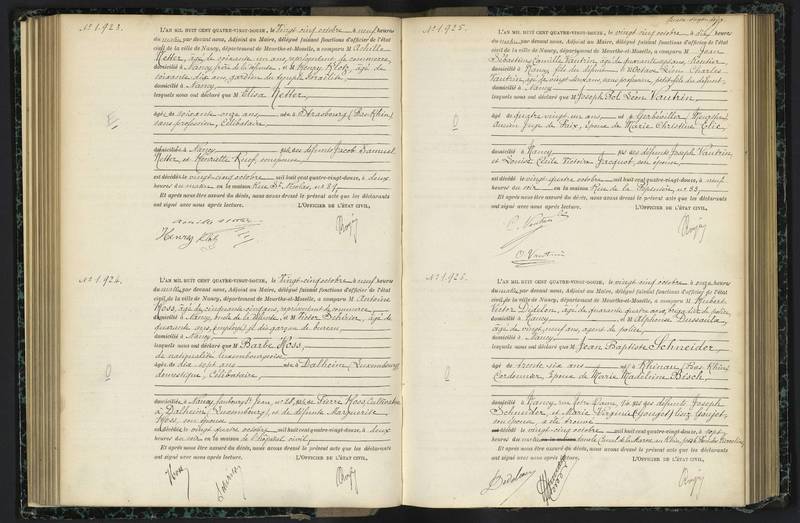 N° 1923.
L'AN MIL HUIT CENT QUATRE-VINGT-DOUZE, le Vingt-cinq octobre à neuf heures
du matin par devant nous, Adjoint au Maire, délégué faisant fonctions d'officier de l'état
civil de la ville de Nancy, département de Meurthe-et-Moselle, a comparu M Achille
Netter, âgé de soixante un ans, représentant de commerce,
domicilié à Nancy, frère de la défunte, et M Henry Klotz, âgé de
soixante dix ans, gardien du temple israélite,
domicilié à Nancy,
lesquels nous ont déclaré que M Elisa Netter
âgée de soixante onze ans, née à Strasbourg (Bas-Rhin)
sans profession, Célibataire
domiciliée à Nancy fille des défunts Jacob Samuel
Netter, et Henriette
est décédée le vingt-cinq octobre mil huit cent quatre-vingt-douze, à deux
heures du matin, en la maison Rue St Nicolas, n°
Et après nous être assuré du décès, nous avons dressé le présent acte que les déclarants
ont signé avec nous après lecture. L'OFFICIER DE L'ÉTAT CIVIL,
Henry Klotz
N° 1924.
L'AN MIL HUIT CENT QUATRE-VINGT-DOUZE, le Vingt-cinq octobre à neuf heures
du matin, par devant nous, Adjoint au Maire, délégué faisant fonctions d'officier de l'état
civil de la ville de Nancy, département de Meurthe-et-Moselle, a comparu M Antoine
Koss, âgé de cinquante cinq ans, représentant de commerce,
domicilié à Nancy, oncle de la défunte, et M Victor Scherrer, âgé de
quarante ans, employé garçon de bureau,
domicilié à Nancy,
lesquels nous ont déclaré que M Barbe Koss,
de nationalité luxembourgeoise
âgée de dix sept ans née à Dalheim (Luxembourg)
domestique, Célibataire,
domiciliée à Nancy, faubourg St Jean, n° 28, fille de Pierre Koss Cultivateur
à Dalheim (Luxembourg), et de défunte Marguerite
Koss, son épouse
est décédée le vingt-quatre octobre mil huit cent quatre-vingt-douze, à deux
heures du soir en la maison de l'hôpital civil,
Et après nous être assuré du décès, nous avons dressé le présent acte que les déclarants
ont signé avec nous après lecture. L'OFFICIER DE L'ÉTAT CIVIL,
Koss
N° 1925.
L'AN MIL HUIT CENT QUATRE-VINGT-DOUZE, le vingt-cinq octobre à dix heures
du matin par devant nous, Adjoint au Maire, délégué faisant fonctions d'officier de l'état
civil de la ville de Nancy, département de Meurthe-et-Moselle, a comparu M Jean
Sébastien Camille Vautrin, âgé de quarante ans, Rentier
domicilié à Nancy, fils du défunt et M Octave Léon Charles
Vautrin, âgé de vingt deux ans, sans profession, petit-fils du défunt
domicilié à Nancy
lesquels nous ont déclaré que M Joseph Pol Léon Vautrin,
âgé de quatre vingt un ans, né à Gerbéviller Meurthe
ancien Juge de Paix, époux de Marie Christine
domicilié à Nancy fils des défunts Joseph Vautrin,
et Louise Victoire Jacquot, son épouse,
est décédé le vingt quatre octobre mil huit cent quatre-vingt-douze, à neuf
heures du soir en la maison Rue de la Pépinière, n° 33,
Et après nous être assuré du décès, nous avons dressé le présent acte que les déclarants
ont signé avec nous après lecture. L'OFFICIER DE L'ÉTAT CIVIL,
C. Vautrin
O. Vautrin
L'AN MIL HUIT CENT QUATRE-VINGT-DOUZE, le vingt-cinq octobre à onze heures
du matin, par devant nous, Adjoint au Maire, délégué faisant fonctions d'officier de l'état
civil de la ville de Nancy, département de Meurthe-et-Moselle, a comparu M Hubert
Victor Didelon, âgé de quarante quatre ans, brigadier de police,
domicilié à Nancy, et M Alphonse Dussaulx,
âgé de vingt neuf ans, agent de police,
domicilié à Nancy,
lesquels nous ont déclaré que M Jean Baptiste Schneider,
âgé de trente six ans né à Rhinau (Bas-Rhin)
Cordonnier, époux de Marie Madeleine Bisch,
domicilié à Nancy, rue fils des défunts Joseph
Schneider, et Marie Virginie
son épouse, a été trouvé
le vingt-cinq octobre mil huit cent quatre-vingt-douze, à sept
heures du matin dans le Canal de la Marne au Rhin,
Et après nous être assuré du décès, nous avons dressé le présent acte que les déclarants
ont signé avec nous après lecture. L'OFFICIER DE L'ÉTAT CIVIL,
Didelon